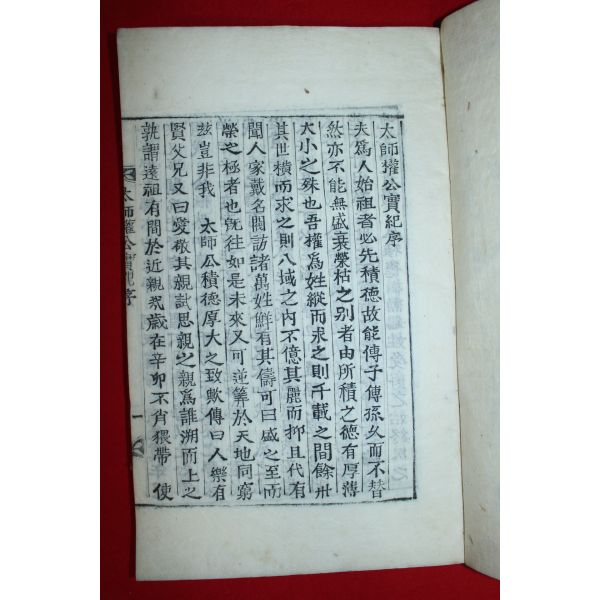 太師權公實紀序
夫爲人始祖者必先積德故能傳子傳孫久而不替
然亦不能無盛衰榮枯之别者由所積之德有厚薄
大小之殊也吾權爲姓縱而求之則千載之間餘卅
其世横而求之則八域之內不億其麗而抑且代有
聞人家戴名閥訪諸萬姓鮮有其儔可曰盛之至而
榮之極者也旣往如是未來又可逆筭於天地同窮
玆豈非我 太師公積德厚大之致歟傳曰人樂有
賢父兄又曰愛敬其親試思親之親爲誰溯而上之
孰謂遠祖有間於近親哉歲在辛卯不肖猥帶 使
太師權公實紀序 一